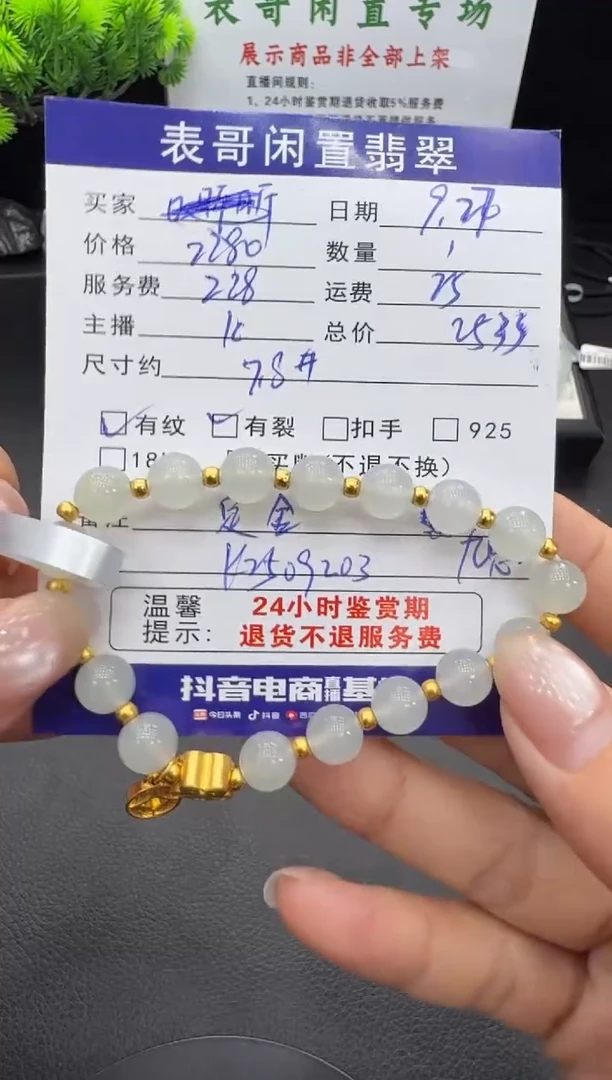 表哥闲置专场
展示商品非全部上架
直播间规则：
1、24小时鉴赏期退货收取5%服务费
表哥闲置翡翠
买家 日期 9.27
价格 2280 数量 1
服务费 228 运费 25
主播 总价 2533
尺寸约 7.8#
有纹 有裂 扣手 925
18 (不退不换)
定金
K2509203
温馨 24小时鉴赏期
提示: 退货不退服务费
抖音电商直播基
今日头条 抖音